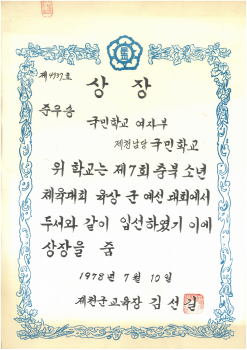 상장
준우승
국민학교 여자부
제천남당 국민학교
위 학교는 제7회 충북소년
체육대회 육상 군 예선 대회에서
두서와 같이 입선하였기 이에
상장을 줌
1978년 7월 10일
제천군교육장 김선길